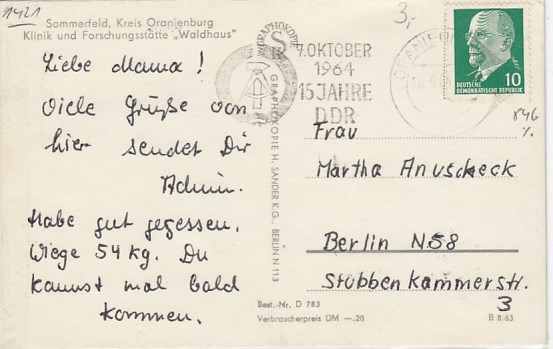 1421
Sommerfeld, Kreis Oranienburg
Klinik und Forschungsstätte „Waldhaus"
3,-
Liebe Mama!
Viele Grüße von
hier sendet Dir
Habe gut gegessen.
Wiege 54 kg. Du
kannst mal bald
kommen.
GRAPHOKOPIE
GRAPHOKOPIE H. SANDER K.G., BERLIN N 113
7. OKTOBER
1964
15 JAHRE
DDR
10
DEUTSCHE
DEMOKRATISCHE REPUBLIK
Frau
Martha Anuscheck
Berlin N58
Stubbenkammerstr.
3
Best.-Nr. D 783
Verbraucherpreis DM —.20
B 8/63